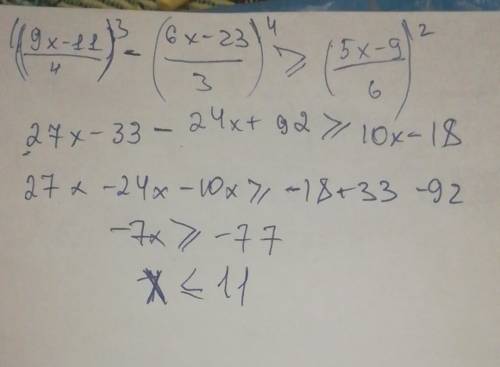 ((9x-11)/4)³ - ((6x-23)/3)⁴ ⩾ ((5x-9)/6)²
27x-33 - 24x+92 ⩾ 10x-18
27x -24x -10x ⩾ -18+33 -92
-7x ⩾ -77
x ≤ 11